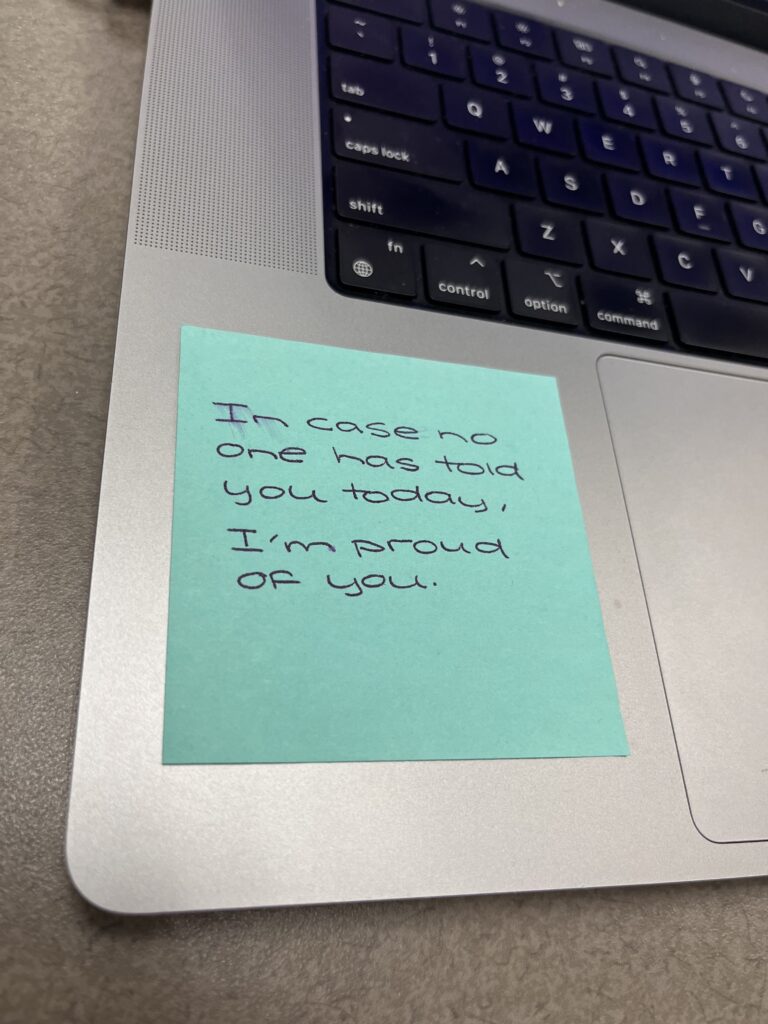 ~
`
!
1
@
2
#
3
$
4
%
5
^
6
tab
Q
W
E
R
T
caps lock
A
S
D
F
G
shift
Z
X
C
V
fn
control
option
command
In case no
one has told
you today,
I'm proud
OF you.